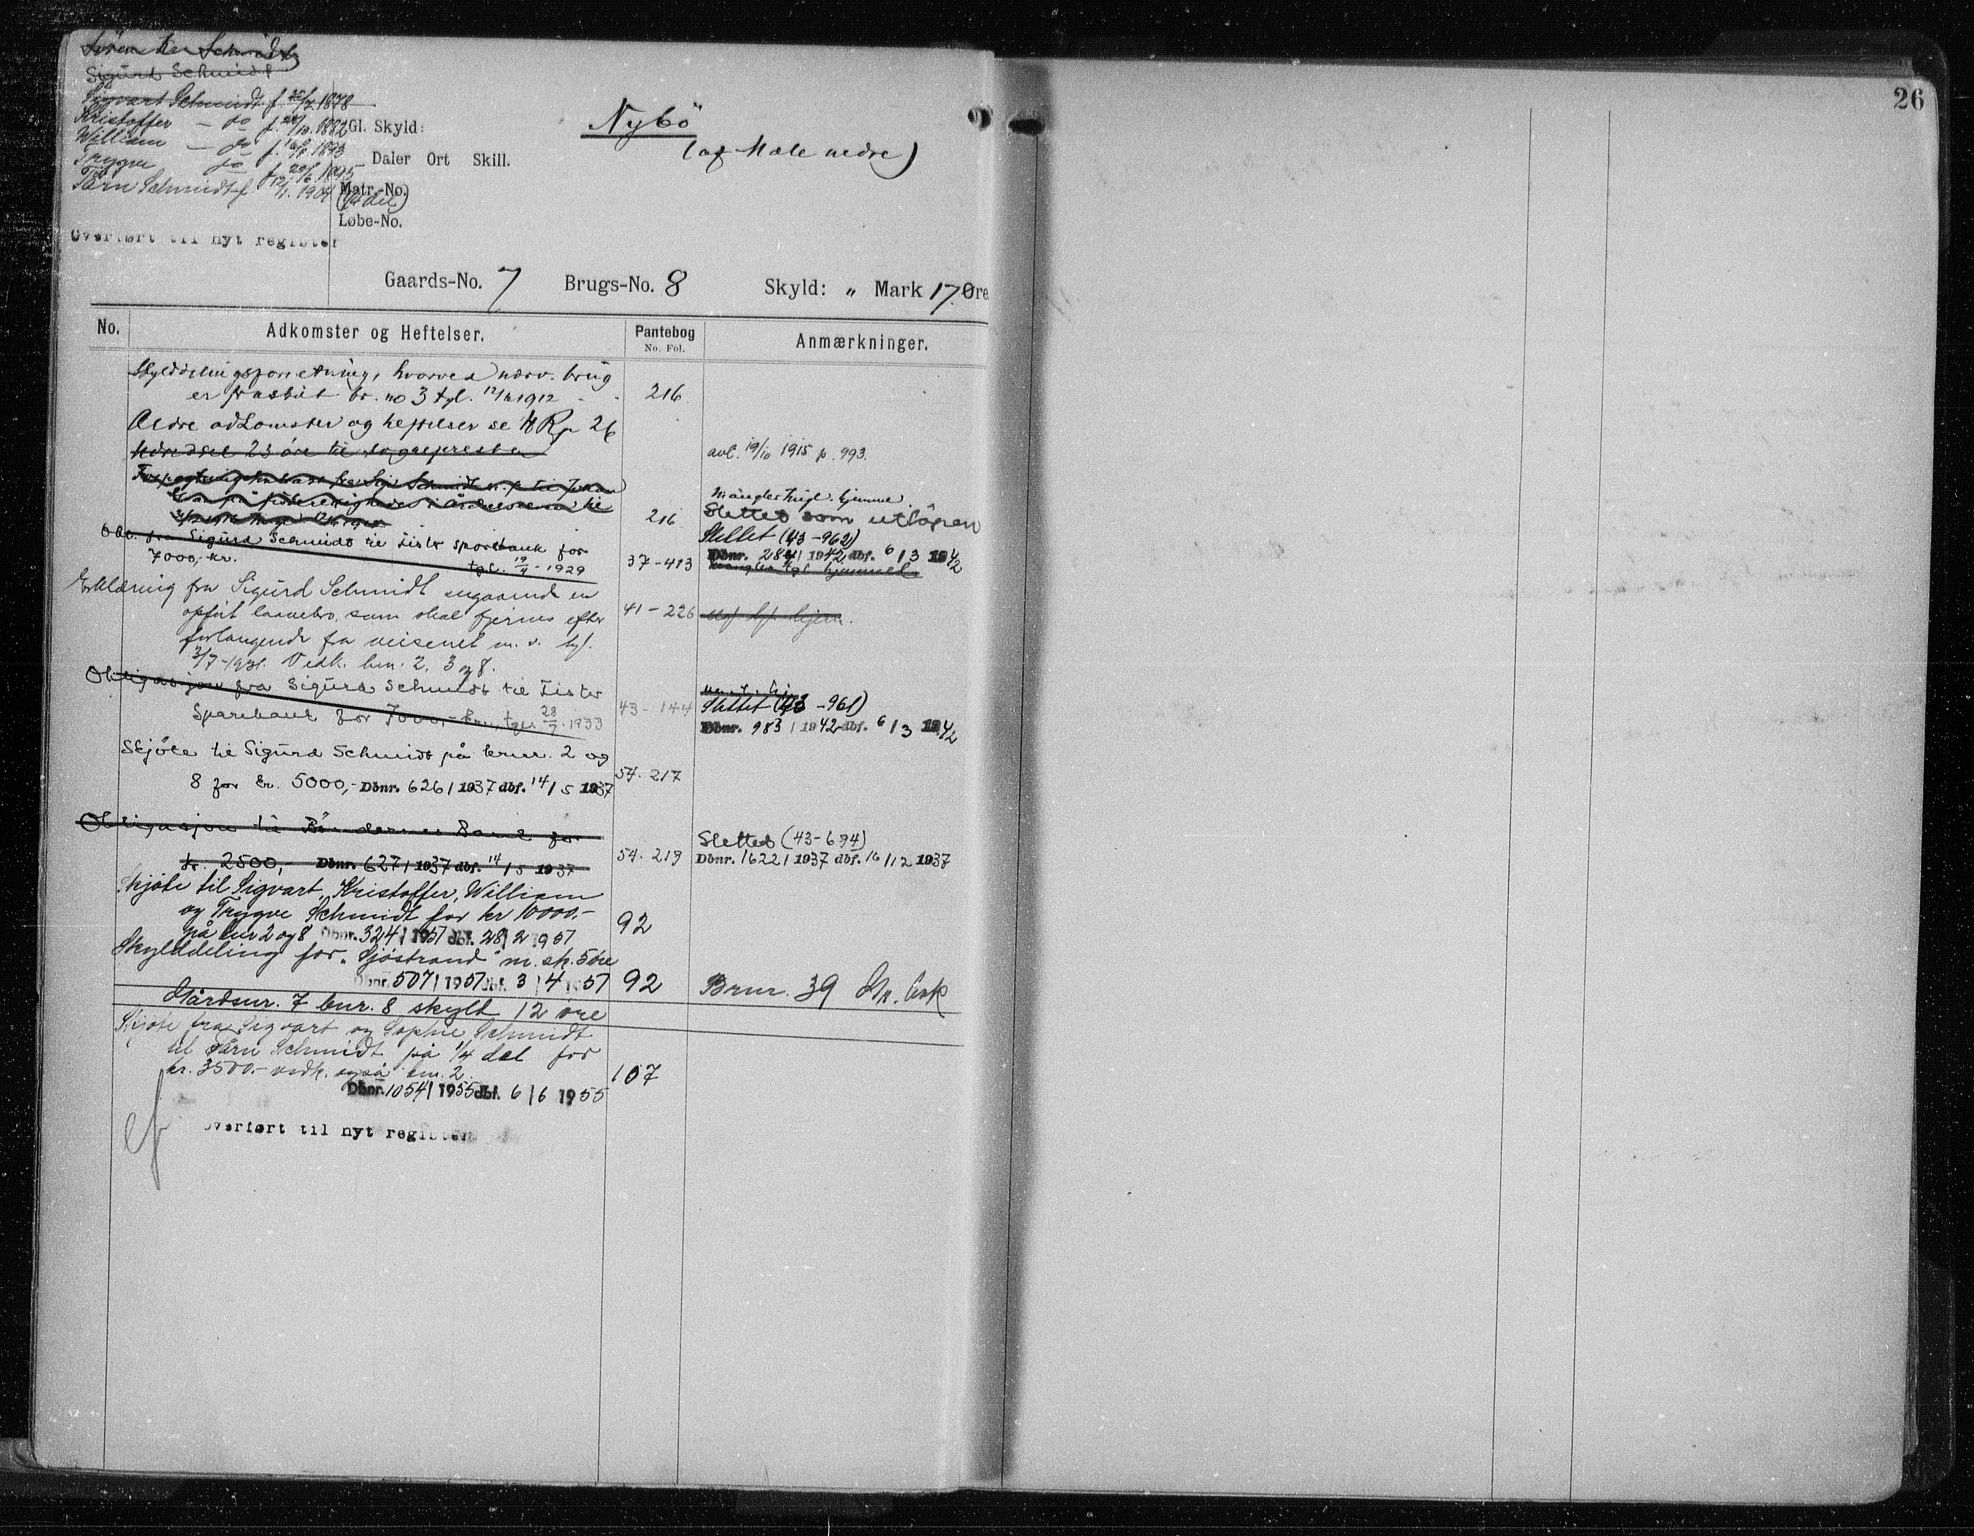 26
Sören Schmidt
Sigurd Schmidt
Sigvart Schmidt f. 1878
Kristoffer — do f. 1882
William — do f. 1893
Trygve do f. 29/6 1895
Tårn Schmidt f. 12/1. 1904
Overført til nyt register
Gl. Skyld:
Daler Ort Skill.
Matr.-No.
(1/4 del)
Løbe-No.
Nybö
(af Mæle nedre)
Gaards-No. 7 Brugs-No. 8 Skyld: „ Mark 17 Øre
No. Adkomster og Heftelser. Pantebog No. Fol. Anmærkninger.
Skylddelingsforretning, hvorved nærv. brug
er fraskilt br. no 3 tgl. 1912 216
Ældre adkomster og heftelser se Rp 26
23 øre til sognepresten avl. 19/10 1915 p. 993.
Schmidt til
mangler hjemmel
216 Slettes som utløpen
Obl. fra Sigurd Schmidt til Lister sparebank for Slettet (43-962)
7000,- kr. tgl. 19/9 - 1929 37-413 Dbnr. 284/1942 dbf. 6/3 1942
mangler hjemmel
Erklæring fra Sigurd Schmidt angaaende en
opført laavebro, som skal fjernes efter 41-226
forlangende fra veisenet m. v. tgl.
3/7-1931. Vedk. bnr. 2, 3 og 8.
Obligasjon fra Sigurd Schmidt til Lister
Sparebank for 7000,- kr., tgl. 28/7 1933 43-144 Slettet (43-961)
Dbnr. 983/1942 dbf. 6/3 1942
Skjøte til Sigurd Schmidt på brnr. 2 og
8 for kr. 5000,- Dbnr. 626/1937 dbf. 14/5 1937 54-217
Obligasjon til Bøndernes Bank for Slettes (43-694)
kr. 2500,- Dbnr. 627/1937 dbf. 14/5 1937 54-219 Dbnr. 1622/1937 dbf. 16/12 1937
Skjøte til Sigvart, Kristoffer, William
og Trygve Schmidt for kr 10000.-
på bnr 2 og 8 Dbnr. 324/1951 dbf. 28/2 1951 92
Skylddeling for „Sjøstrand“ m. sk. 5 øre
Dbnr. 507/1951 dbf. 3/4 1951 92 Brnr. 39
Gårdsnr. 7 bnr. 8 skyld 12 øre
Skjøte fra Sigvart og Sophie Schmidt
til Tårn Schmidt på 1/4 del for
kr. 3500.- vedk. også bnr. 2. 107
Dbnr. 1054/1955 dbf. 6/6 1955
Overført til nyt register